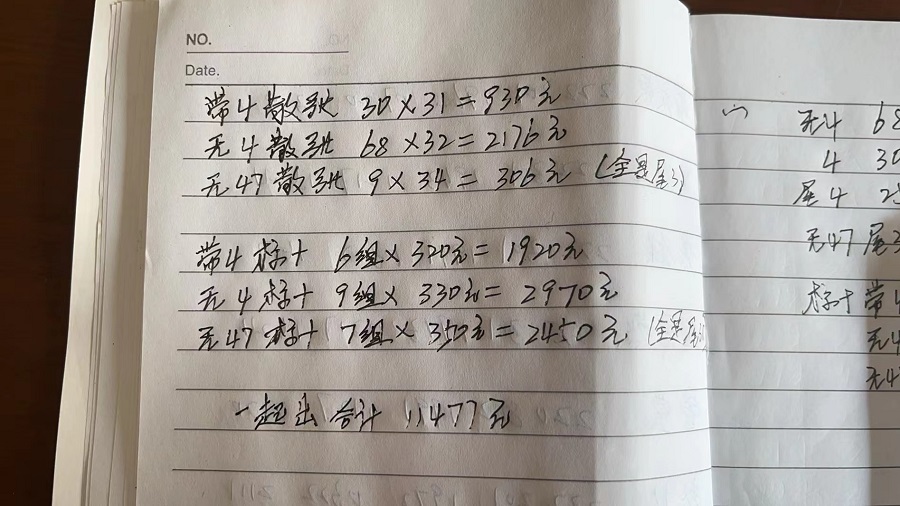 NO.
Date.
带4散张 30×31=930元
无4散张 68×32=2176元
无47散张 9×34=306元 (全是尾3)
带4标十 6组×320元=1920元
无4标十 9组×330元=2970元
无47标十 7组×350元=2450元 (全是尾
一起出合计 11477元
无4 68
4 30
尾4 25
无47尾3
标十带4
无4
无47